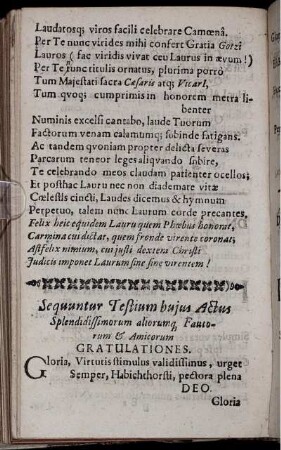 Laudatosq; viros facili celebrare Camœnâ.
Per Te nunc virides mihi confert Gratia Gotzi
Lauros (fac viridis vivat ceu Laurus in ævum!)
Per Te nunc titulis ornatus, plurima porrò
Tum Majestati sacra Cæsaris atq; Vicarî,
Tum qvoq; cumprimis in honorem metra li-
benter
Numinis excelsi cantabo, laude Tuorum
Factorum venam calamumq; subinde fatigans.
Ac tandem qvoniam propter delicta severas
Parcarum teneor leges aliqvando subire,
Te celebrando meos claudam patienter ocellos;
Et posthac Lauru nec non diademate vitæ
Cœlestis cincti, Laudes dicemus & hymnum
Perpetuo, talem nunc Laurum corde precantes.
Felix heic equidem Lauru quem Phœbus honorat,
Carmina cui dictat, quem fronde virente coronat;
Ast felix nimium, cui justi dextera Christi
Judicis imponet Laurum sine fine virentem!
Sequuntur Testium hujus Actus
Splendidissimorum aliorumq; Fauto-
rum & Amicorum
GRATULATIONES.
Gloria, Virtutis stimulus validissimus, urget
Semper, Habichthorsti, pectora plena
DEO.
Gloria